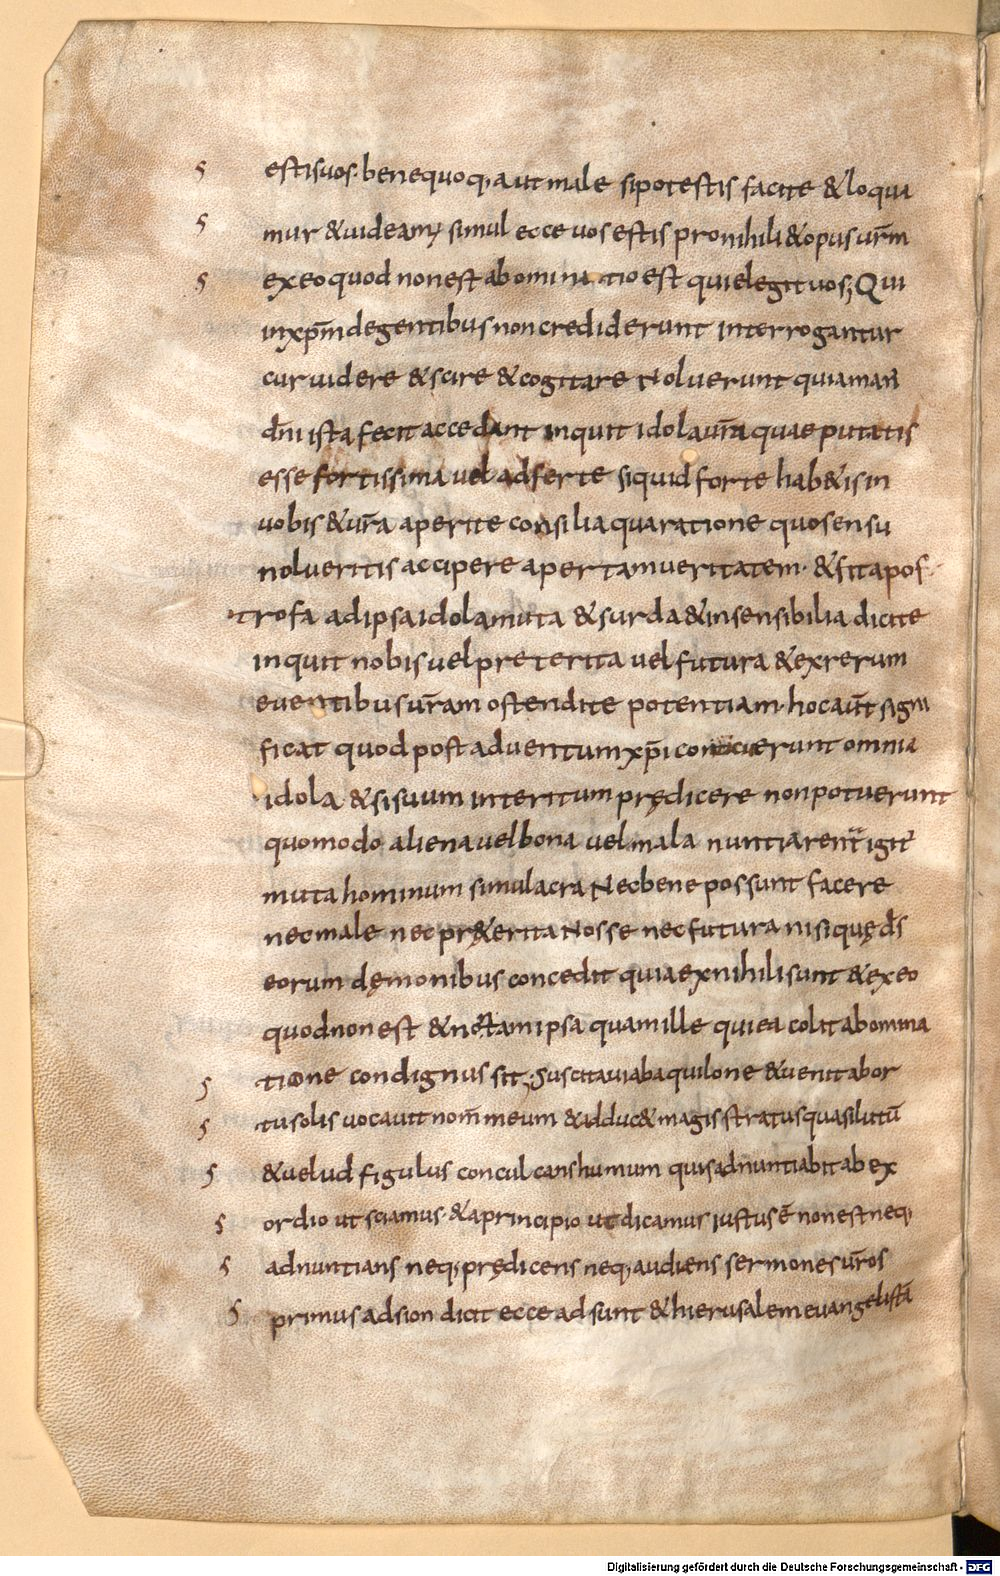 estis uos. bene quoq; aut male si potestis facite & loqua
mur & uideam; simul ecce uos estis pro nihili & opus ur̄m
ex eo quod non est abominatio est qui elegit uos; Qui
in xp̄m degentibus non crediderunt interrogantur
cur uidere & scire & cogitare Noluerunt quia man
dn̄i ista fecit accedant inquit idola ur̄a quae putatis
esse fortissima uel adferte si quid forte hab&is in
uobis & ur̄a aperite consilia qua ratione quo sensu
nolueritis accipere apertam ueritatem. & fit apos
trofa ad ipsa idola muta & surda & insensibilia dicite
inquit nobis uel preterita uel futura & ex rerum
euentibus ur̄am ostendite potentiam. hoc aūt signi
ficat quod post aduentum xp̄i conticuerunt omnia
idola & si suum interitum prędicere non potuerunt
quomodo aliena uel bona uel mala nuntiarent igit̄
muta hominum simulacra Nec bene possunt facere
nec male nec pr&erita Nosse nec futura nisi quę ds̄
eorum dęmonibus concedit quia ex nihili sunt & ex eo
quod non est & non tam ipsa quam ille qui ea colit abomina
tione condignus sit; Suscitaui ab aquilone & uenit ab or
tu solis uocauit nom̄ meum & adduc& magistratus quasi lutū
& uelud figulus conculcans humum quis adnuntiabit ab ex
ordio ut sciamus. & a principio ut dicamus iustus ē non est neq;
adnuntians neq; prędicens neq; audiens sermones ur̄os
primus ad sion dicit ecce adsunt & hierusalem euangelistā
Digitalisierung gefördert durch die Deutsche Forschungsgemeinschaft - DFG